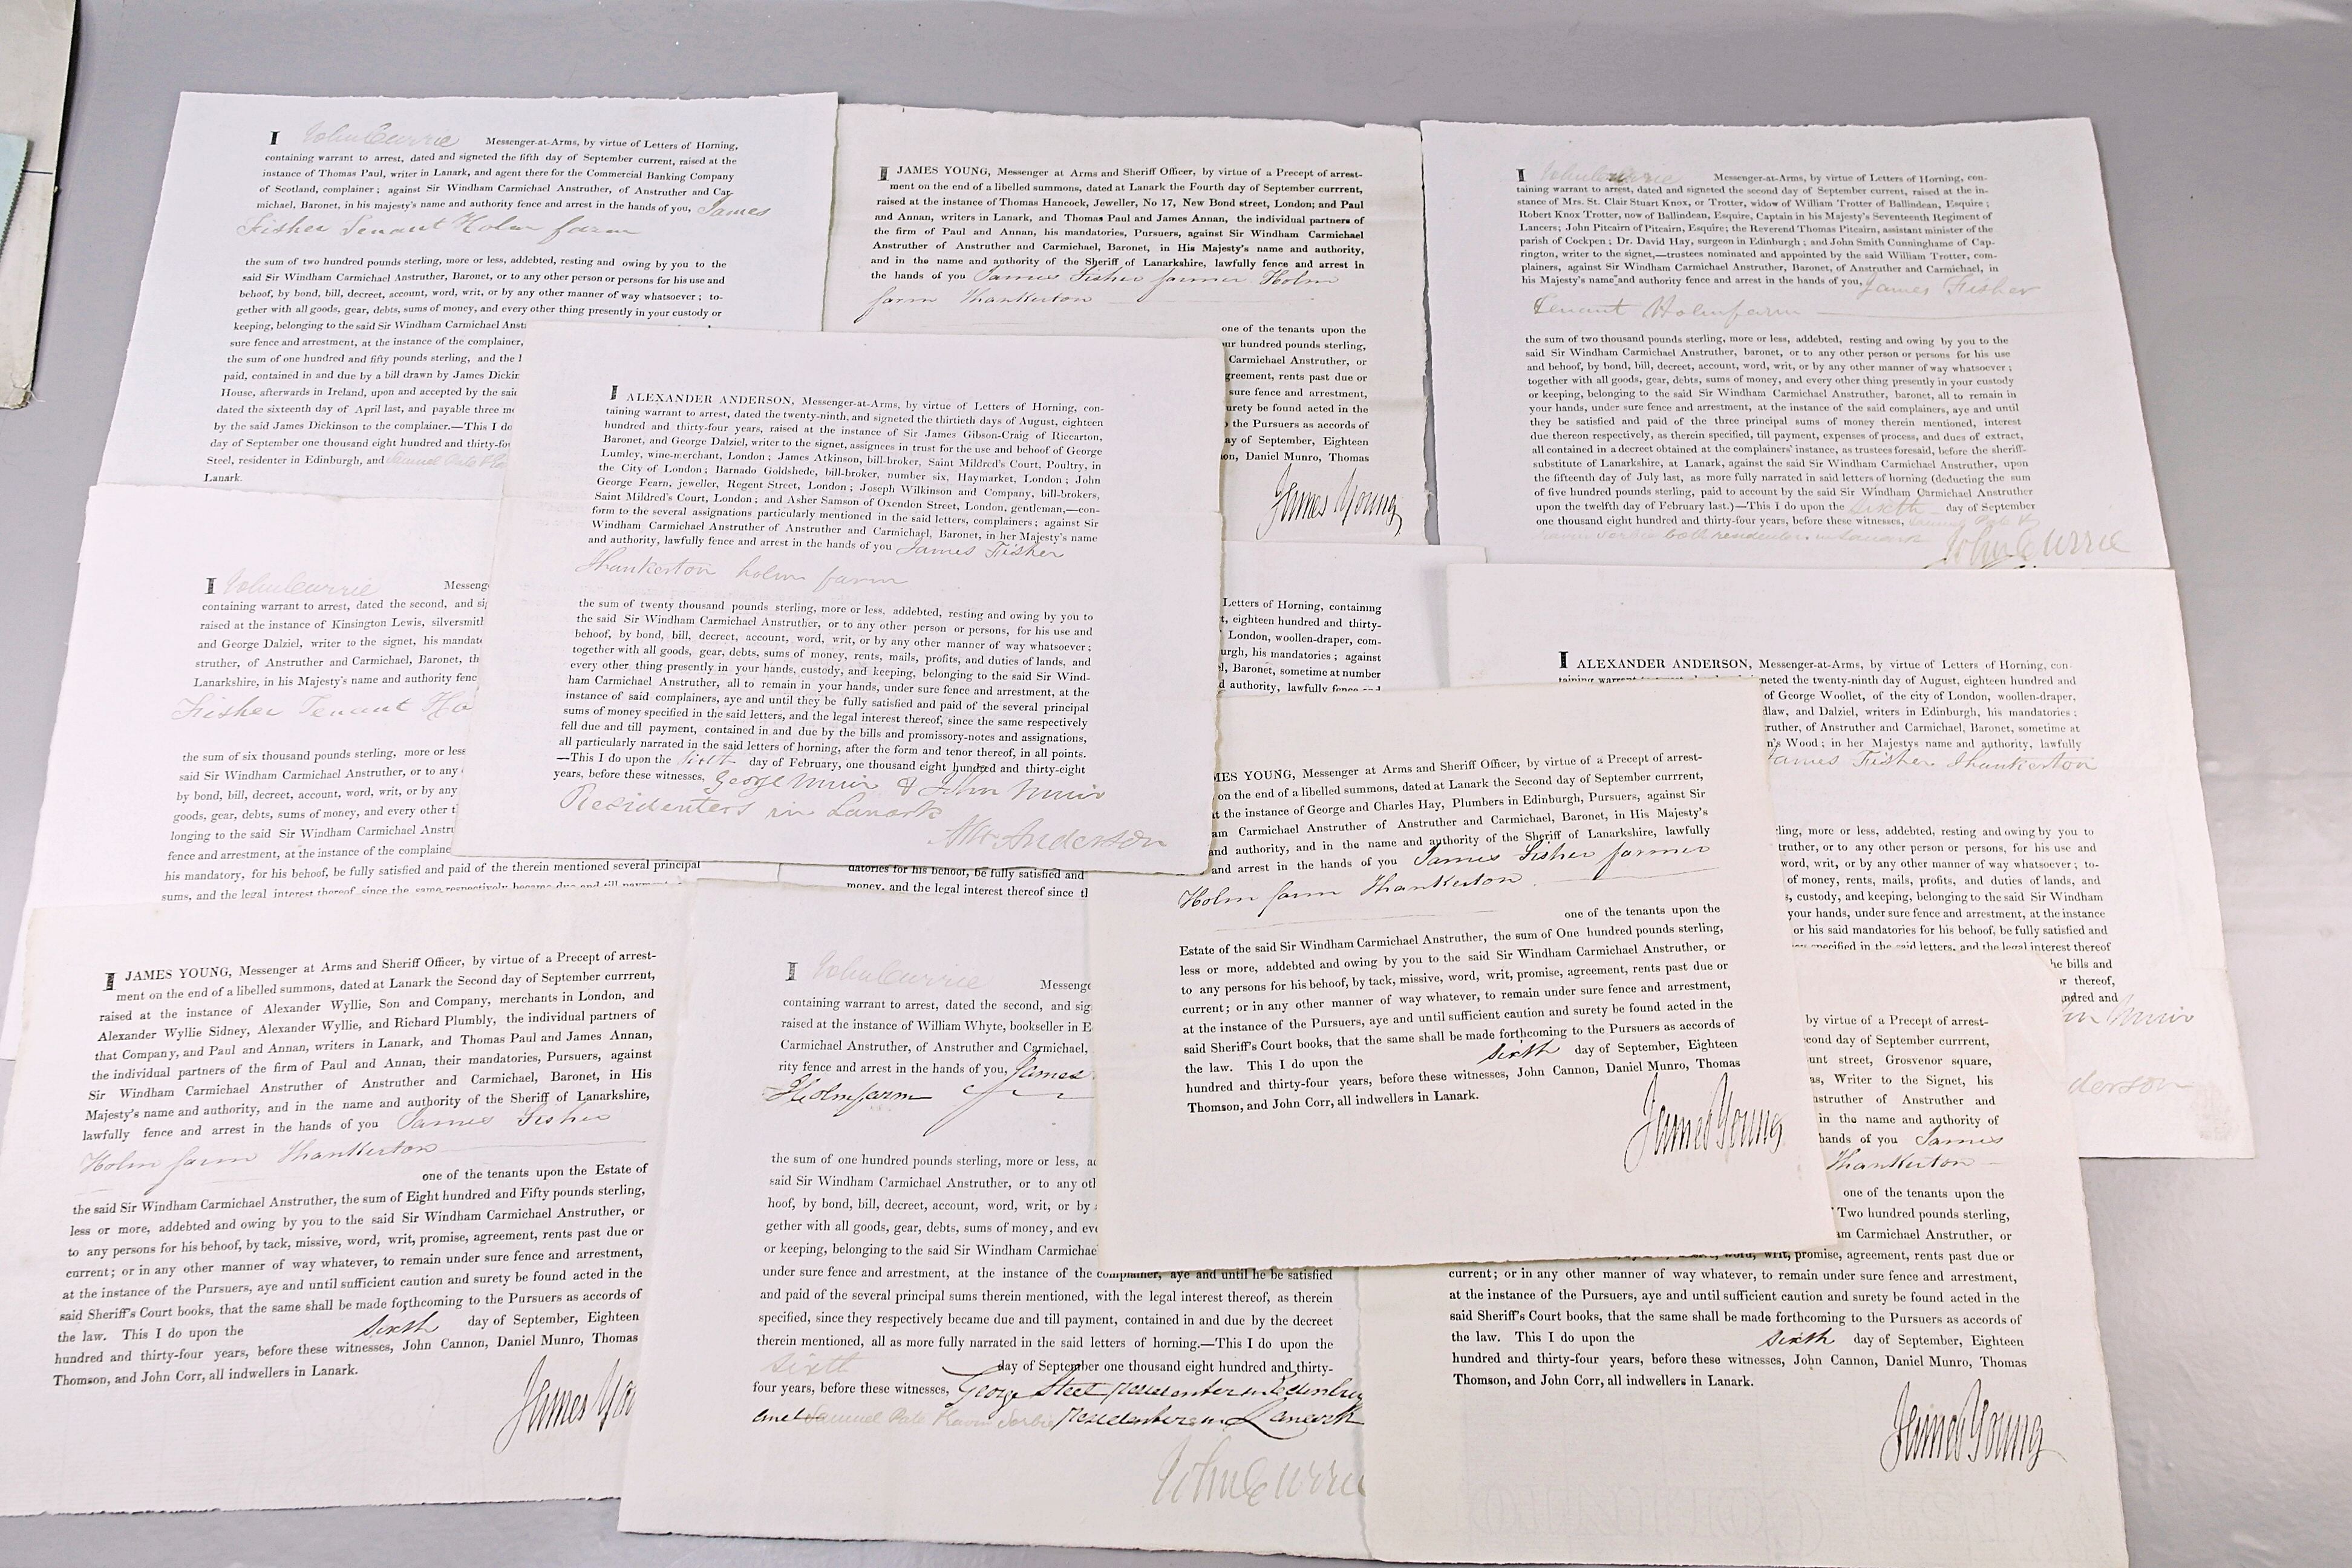 I John Currie Messenger-at-Arms, by virtue of Letters of Horning,
containing warrant to arrest, dated and signeted the fifth day of September current, raised at the
instance of Thomas Paul, writer in Lanark, and agent there for the Commercial Banking Company
of Scotland, complainer; against Sir Windham Carmichael Anstruther, of Anstruther and Car-
michael, Baronet, in his majesty's name and authority fence and arrest in the hands of you, James
Fisher Tenant Holm farm
the sum of two hundred pounds sterling, more or less, addebted, resting and owing by you to the
said Sir Windham Carmichael Anstruther, Baronet, or to any other person or persons for his use and
behoof, by bond, bill, decreet, account, word, writ, or by any other manner of way whatsoever; to-
gether with all goods, gear, debts, sums of money, and every other thing presently in your custody or
keeping, belonging to the said Sir Windham Carmichael Anst
sure fence and arrestment, at the instance of the complainer,
the sum of one hundred and fifty pounds sterling, and the l
paid, contained in and due by a bill drawn by James Dickin
House, afterwards in Ireland, upon and accepted by the said
dated the sixteenth day of April last, and payable three mo
by the said James Dickinson to the complainer.—This I do
day of September one thousand eight hundred and thirty-fo
Steel, residenter in Edinburgh, and Samuel Pate
Lanark.
I JAMES YOUNG, Messenger at Arms and Sheriff Officer, by virtue of a Precept of arrest-
ment on the end of a libelled summons, dated at Lanark the Fourth day of September currrent,
raised at the instance of Thomas Hancock, Jeweller, No 17, New Bond street, London; and Paul
and Annan, writers in Lanark, and Thomas Paul and James Annan, the individual partners of
the firm of Paul and Annan, his mandatories, Pursuers, against Sir Windham Carmichael
Anstruther of Anstruther and Carmichael, Baronet, in His Majesty's name and authority,
and in the name and authority of the Sheriff of Lanarkshire, lawfully fence and arrest in
the hands of you James Fisher farmer Holm
farm Thankerton
one of the tenants upon the
ur hundred pounds sterling,
Carmichael Anstruther, or
greement, rents past due or
sure fence and arrestment,
urety be found acted in the
the Pursuers as accords of
ay of September, Eighteen
on, Daniel Munro, Thomas
James Young
I John Currie Messenger-at-Arms, by virtue of Letters of Horning, con-
taining warrant to arrest, dated and signeted the second day of September current, raised at the in-
stance of Mrs. St. Clair Stuart Knox, or Trotter, widow of William Trotter of Ballindean, Esquire;
Robert Knox Trotter, now of Ballindean, Esquire, Captain in his Majesty's Seventeenth Regiment of
Lancers; John Pitcairn of Pitcairn, Esquire; the Reverend Thomas Pitcairn, assistant minister of the
parish of Cockpen; Dr. David Hay, surgeon in Edinburgh; and John Smith Cunninghame of Cap-
rington, writer to the signet,—trustees nominated and appointed by the said William Trotter, com-
plainers, against Sir Windham Carmichael Anstruther, Baronet, of Anstruther and Carmichael, in
his Majesty's name and authority fence and arrest in the hands of you, James Fisher
Tenant Holmfarm
the sum of two thousand pounds sterling, more or less, addebted, resting and owing by you to the
said Sir Windham Carmichael Anstruther, baronet, or to any other person or persons for his use
and behoof, by bond, bill, decreet, account, word, writ, or by any other manner of way whatsoever;
together with all goods, gear, debts, sums of money, and every other thing presently in your custody
or keeping, belonging to the said Sir Windham Carmichael Anstruther, baronet, all to remain in
your hands, under sure fence and arrestment, at the instance of the said complainers, aye and until
they be satisfied and paid of the three principal sums of money therein mentioned, interest
due thereon respectively, as therein specified, till payment, expenses of process, and dues of extract,
all contained in a decreet obtained at the complainers' instance, as trustees foresaid, before the sheriff-
substitute of Lanarkshire, at Lanark, against the said Sir Windham Carmichael Anstruther, upon
the fifteenth day of July last, as more fully narrated in said letters of horning (deducting the sum
of five hundred pounds sterling, paid to account by the said Sir Windham Carmichael Anstruther
upon the twelfth day of February last.)—This I do upon the sixth day of September
one thousand eight hundred and thirty-four years, before these witnesses, Samuel Pate &
both residenters in Lanark
John Currie
I ALEXANDER ANDERSON, Messenger-at-Arms, by virtue of Letters of Horning, con-
taining warrant to arrest, dated the twenty-ninth, and signeted the thirtieth days of August, eighteen
hundred and thirty-four years, raised at the instance of Sir James Gibson-Craig of Riccarton,
Baronet, and George Dalziel, writer to the signet, assignees in trust for the use and behoof of George
Lumley, wine-merchant, London; James Atkinson, bill-broker, Saint Mildred's Court, Poultry, in
the City of London; Barnado Goldshede, bill-broker, number six, Haymarket, London; John
George Fearn, jeweller, Regent Street, London; Joseph Wilkinson and Company, bill-brokers,
Saint Mildred's Court, London; and Asher Samson of Oxendon Street, London, gentleman,—con-
form to the several assignations particularly mentioned in the said letters, complainers; against Sir
Windham Carmichael Anstruther of Anstruther and Carmichael, Baronet, in her Majesty's name
and authority, lawfully fence and arrest in the hands of you James Fisher
Thankerton holm farm
the sum of twenty thousand pounds sterling, more or less, addebted, resting and owing by you to
the said Sir Windham Carmichael Anstruther, or to any other person or persons, for his use and
behoof, by bond, bill, decreet, account, word, writ, or by any other manner of way whatsoever;
together with all goods, gear, debts, sums of money, rents, mails, profits, and duties of lands, and
every other thing presently in your hands, custody, and keeping, belonging to the said Sir Wind-
ham Carmichael Anstruther, all to remain in your hands, under sure fence and arrestment, at the
instance of said complainers, aye and until they be fully satisfied and paid of the several principal
sums of money specified in the said letters, and the legal interest thereof, since the same respectively
fell due and till payment, contained in and due by the bills and promissory-notes and assignations,
all particularly narrated in the said letters of horning, after the form and tenor thereof, in all points.
—This I do upon the sixth day of February, one thousand eight hundred and thirty-eight
years, before these witnesses, George Muir & John Muir
Residenters in Lanark
Anderson
I John Currie Messeng
containing warrant to arrest, dated the second, and sig
raised at the instance of Kinsington Lewis, silversmith
and George Dalziel, writer to the signet, his mandat
struther, of Anstruther and Carmichael, Baronet, th
Lanarkshire, in his Majesty's name and authority fenc
Fisher Tenant Ho
the sum of six thousand pounds sterling, more or less
said Sir Windham Carmichael Anstruther, or to any
by bond, bill, decreet, account, word, writ, or by any
goods, gear, debts, sums of money, and every other t
longing to the said Sir Windham Carmichael Anstru
fence and arrestment, at the instance of the complaine
his mandatory, for his behoof, be fully satisfied and paid of the therein mentioned several principal
sums, and the legal interest thereof since the same respectively became due and till
Letters of Horning, containing
t, eighteen hundred and thirty-
London, woollen-draper, com-
urgh, his mandatories; against
l, Baronet, sometime at number
authority, lawfully fence and
datories for his behoof, be fully satisfied and
money, and the legal interest thereof since tl
I ALEXANDER ANDERSON, Messenger-at-Arms, by virtue of Letters of Horning, con-
taining warrant neted the twenty-ninth day of August, eighteen hundred and
of George Woollet, of the city of London, woollen-draper,
dlaw, and Dalziel, writers in Edinburgh, his mandatories;
ruther, of Anstruther and Carmichael, Baronet, sometime at
n's Wood; in her Majestys name and authority, lawfully
James Fisher Thankerton
rling, more or less, addebted, resting and owing by you to
truther, or to any other person or persons, for his use and
word, writ, or by any other manner of way whatsoever; to-
of money, rents, mails, profits, and duties of lands, and
s, custody, and keeping, belonging to the said Sir Windham
your hands, under sure fence and arrestment, at the instance
or his said mandatories for his behoof, be fully satisfied and
specified in the said letters, and the legal interest thereof
he bills and
r thereof,
ndred and
Muir
derson
MES YOUNG, Messenger at Arms and Sheriff Officer, by virtue of a Precept of arrest-
on the end of a libelled summons, dated at Lanark the Second day of September currrent,
t the instance of George and Charles Hay, Plumbers in Edinburgh, Pursuers, against Sir
am Carmichael Anstruther of Anstruther and Carmichael, Baronet, in His Majesty's
and authority, and in the name and authority of the Sheriff of Lanarkshire, lawfully
and arrest in the hands of you James Fisher farmer
Holm farm Thankerton
one of the tenants upon the
Estate of the said Sir Windham Carmichael Anstruther, the sum of One hundred pounds sterling,
less or more, addebted and owing by you to the said Sir Windham Carmichael Anstruther, or
to any persons for his behoof, by tack, missive, word, writ, promise, agreement, rents past due or
current; or in any other manner of way whatever, to remain under sure fence and arrestment,
at the instance of the Pursuers, aye and until sufficient caution and surety be found acted in the
said Sheriff's Court books, that the same shall be made forthcoming to the Pursuers as accords of
the law. This I do upon the sixth day of September, Eighteen
hundred and thirty-four years, before these witnesses, John Cannon, Daniel Munro, Thomas
Thomson, and John Corr, all indwellers in Lanark.
James Young
I JAMES YOUNG, Messenger at Arms and Sheriff Officer, by virtue of a Precept of arrest-
ment on the end of a libelled summons, dated at Lanark the Second day of September currrent,
raised at the instance of Alexander Wyllie, Son and Company, merchants in London, and
Alexander Wyllie Sidney, Alexander Wyllie, and Richard Plumbly, the individual partners of
that Company, and Paul and Annan, writers in Lanark, and Thomas Paul and James Annan,
the individual partners of the firm of Paul and Annan, their mandatories, Pursuers, against
Sir Windham Carmichael Anstruther of Anstruther and Carmichael, Baronet, in His
Majesty's name and authority, and in the name and authority of the Sheriff of Lanarkshire,
lawfully fence and arrest in the hands of you James Fisher
Holm farm Thankerton
one of the tenants upon the Estate of
the said Sir Windham Carmichael Anstruther, the sum of Eight hundred and Fifty pounds sterling,
less or more, addebted and owing by you to the said Sir Windham Carmichael Anstruther, or
to any persons for his behoof, by tack, missive, word, writ, promise, agreement, rents past due or
current; or in any other manner of way whatever, to remain under sure fence and arrestment,
at the instance of the Pursuers, aye and until sufficient caution and surety be found acted in the
said Sheriff's Court books, that the same shall be made forthcoming to the Pursuers as accords of
the law. This I do upon the sixth day of September, Eighteen
hundred and thirty-four years, before these witnesses, John Cannon, Daniel Munro, Thomas
Thomson, and John Corr, all indwellers in Lanark.
James You
I John Currie Messenge
containing warrant to arrest, dated the second, and sig
raised at the instance of William Whyte, bookseller in E
Carmichael Anstruther, of Anstruther and Carmichael,
rity fence and arrest in the hands of you, James
Holmfarm
the sum of one hundred pounds sterling, more or less, ad
said Sir Windham Carmichael Anstruther, or to any oth
hoof, by bond, bill, decreet, account, word, writ, or by
gether with all goods, gear, debts, sums of money, and eve
or keeping, belonging to the said Sir Windham Carmichae
under sure fence and arrestment, at the instance of the complainer, aye and until he be satisfied
and paid of the several principal sums therein mentioned, with the legal interest thereof, as therein
specified, since they respectively became due and till payment, contained in and due by the decreet
therein mentioned, all as more fully narrated in the said letters of horning.—This I do upon the
sixth day of September one thousand eight hundred and thirty-
four years, before these witnesses, George Steel residenter in Edinburg
and Samuel Pate residenters in Lanark
John Currie
by virtue of a Precept of arrest-
cond day of September currrent,
unt street, Grosvenor square,
as, Writer to the Signet, his
nstruther of Anstruther and
in the name and authority of
hands of you James
Thankerton
one of the tenants upon the
Two hundred pounds sterling,
am Carmichael Anstruther, or
word, writ, promise, agreement, rents past due or
current; or in any other manner of way whatever, to remain under sure fence and arrestment,
at the instance of the Pursuers, aye and until sufficient caution and surety be found acted in the
said Sheriff's Court books, that the same shall be made forthcoming to the Pursuers as accords of
the law. This I do upon the sixth day of September, Eighteen
hundred and thirty-four years, before these witnesses, John Cannon, Daniel Munro, Thomas
Thomson, and John Corr, all indwellers in Lanark.
James Young